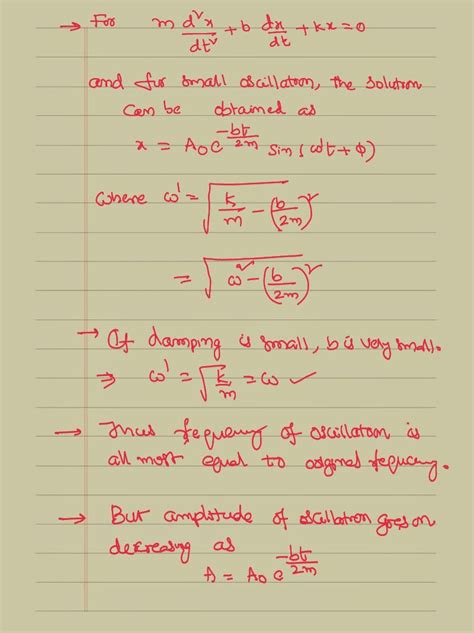 → For m d²x/dt² + b dx/dt + kx = 0
and for small oscillatoon, the solution
can be obtained as
x = A₀e^(-bt/2m) sin(ωt+ϕ)
where ω' = √(k/m - (b/2m)²)
= √(ω² - (b/2m)²)
→ If damping is small, b is very small.
⇒ ω' = √(k/m) = ω ✓
→ Thus fequency of oscillatoon is
all most equal to original fequency.
→ But amplitude of oscillatron goes on
decreasing as
A = A₀ e^(-bt/2m)